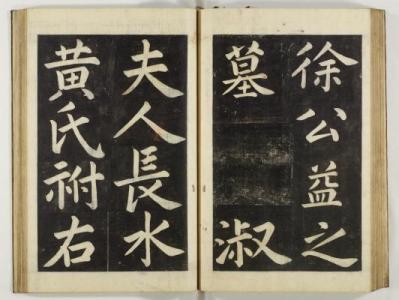 徐公益之
墓　淑
夫人長水
黄氏祔右